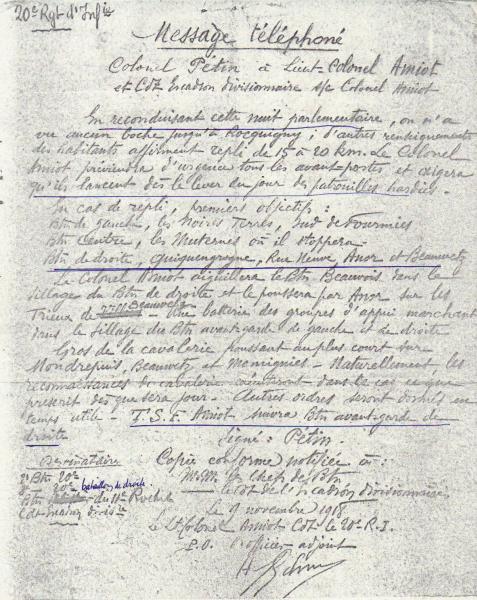 20e Rgt d'Infie
Message téléphoné
Colonel Pétin à Lieut-Colonel Amiot
et Cdt Escadron divisionnaire s/c Colonel Amiot
En reconduisant cette nuit parlementaire, on n'a
vu aucun boche jusqu'à Rocquigny ; d'autres renseignements
des habitants affirment repli de 15 à 20 km. Le Colonel
Amiot préviendra d'urgence tous les avant-postes et exigera
qu'ils lancent dès le lever du jour des patrouilles hardies.
En cas de repli, premiers objectifs :
Btn de gauche, les Noires Terres, Sud de Fourmies
Btn Centre, les Muternes où il stoppera
Btn de droite, Guiguengrogne, Rue Neuve, Anor et Beauwetz
Le Colonel Amiot aiguillera le Btn Beauvois dans le
sillage du Btn de droite et le poussera par Anor sur les
Trieux de Une batterie des groupes d'appui marchant
dans le sillage du Btn avant-garde de gauche et de droite
Gros de la cavalerie poussant au plus court sur
Mondrepuis, Beauwetz et Momignies - Naturellement, les
reconnaissances de cavalerie dans le cas ce que
prescrit dès que sera jour - Autres ordres seront donnés en
temps utile - T.S.F. Amiot suivra Btn avant-garde de
droite
Signé : Pétin.
Copie conforme notifiée à :
3e Btn 20e
M.M. les Chefs de Btn
2e 20e bataillon de droite
le Cdt de l'Escadron divisionnaire
Btn du
Cdt
Le 9 novembre 1918
Le Lt Colonel Amiot Cdt le 20e R.I.
P.O. L'officier-adjoint